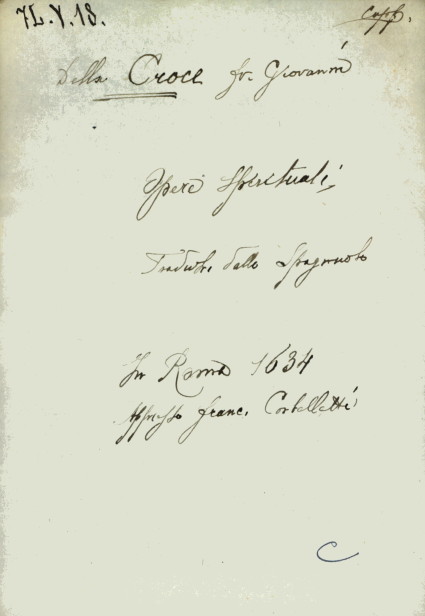 71. Y. 13.
Della Croce fr. Giovanni
Opere Spirituali
Tradotte dallo Spagnuolo
In Roma 1634
Appresso Franc. Corbelletti
C